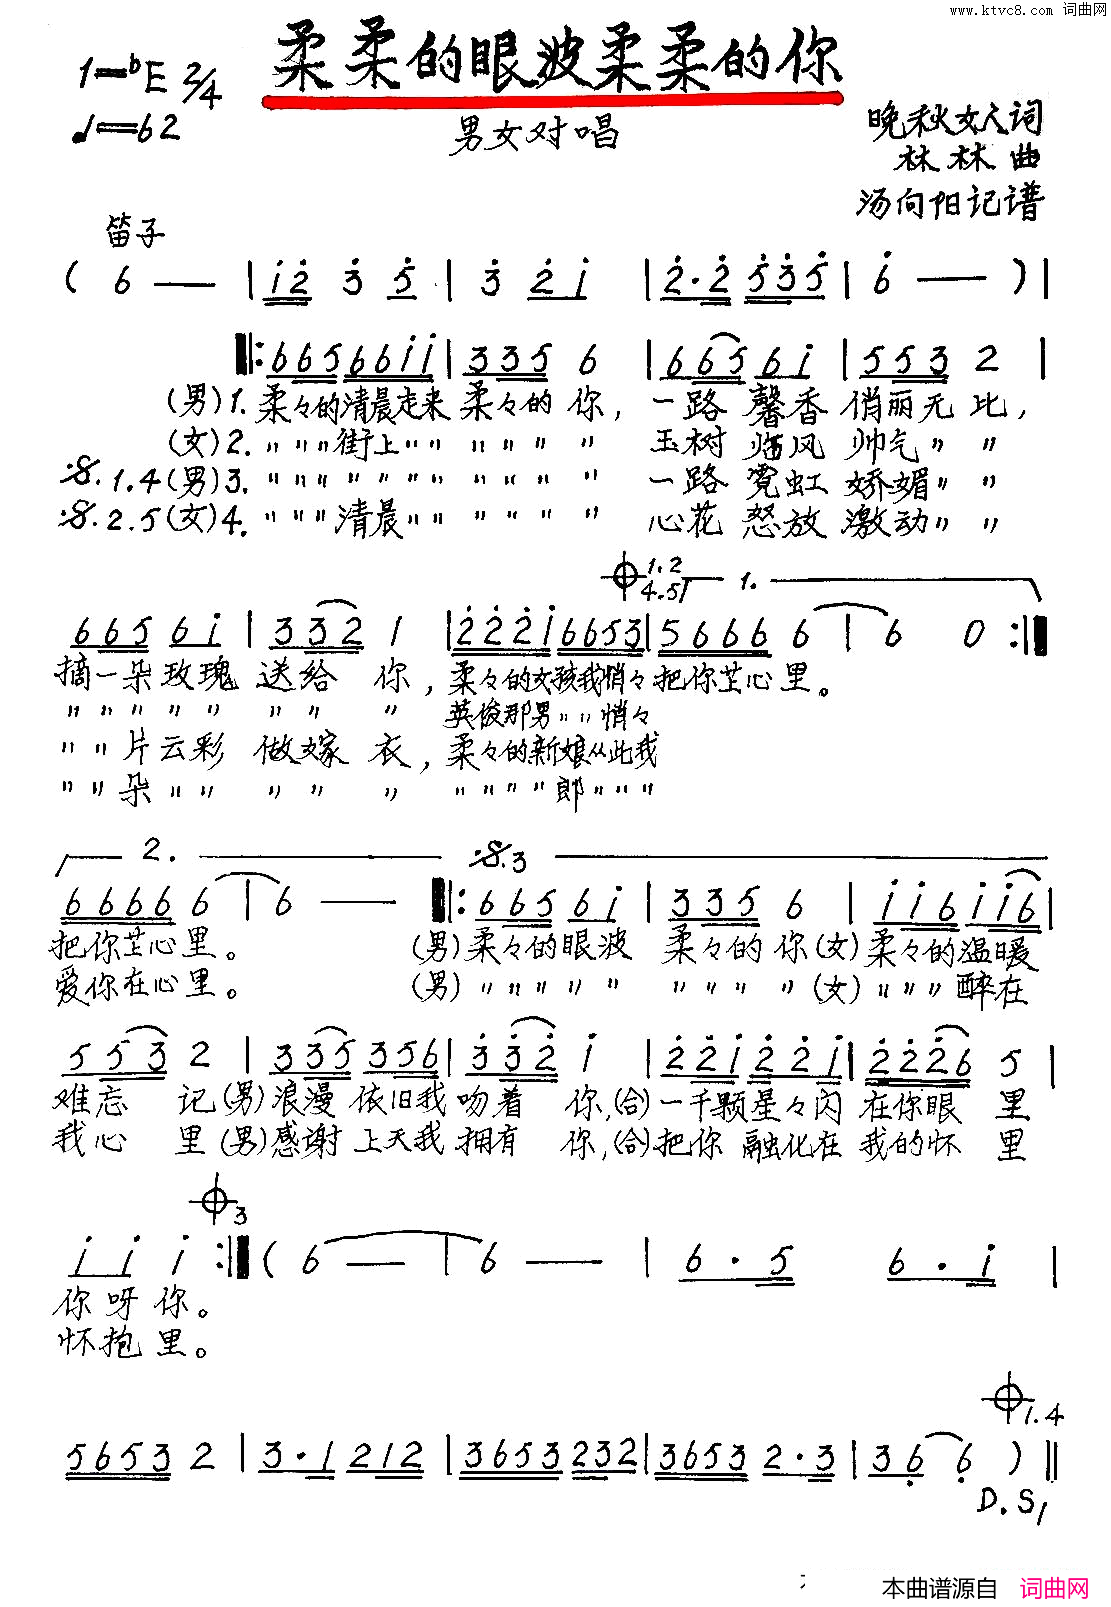 www.ktvc8.com 词曲网
柔柔的眼波柔柔的你
1=bE 2/4
♩=62
男女对唱
晚秋女人词
林林曲
汤向阳记谱
笛子
( 6 — | i2 3 5 | 3 2 i | 2·2 535 | 6 — ) |
‖: 665 66ii | 335 6 | 665 6i | 553 2 |
(男)1. 柔々的清晨走来 柔々的 你, 一路 馨香 俏丽无 比,
(女)2. 〃〃〃街上〃〃 〃〃〃 〃 玉树 临风 帅气〃 〃
𝄋.1.4(男)3. 〃〃〃〃〃〃〃 〃〃〃 〃 一路 霓虹 娇媚〃 〃
𝄋.2.5(女)4. 〃〃〃清晨〃〃 〃〃〃 〃 心花 怒放 激动〃 〃
1.2
4.5 1.
665 6i | 332 1 | 222i 6653 | 5666 6 | 6 0 :‖
摘一朵玫瑰 送给 你, 柔々的女孩我悄々 把你芷心里。
〃〃〃〃〃 〃〃 〃 英俊那男〃〃悄々
〃〃片云彩 做嫁 衣, 柔々的新娘从此我
〃〃朵〃〃 〃〃 〃 〃〃〃〃郎〃〃〃
2. 𝄋.3
6666 6 | 6 — ‖: 665 6i | 335 6 | ii6 ii6 |
把你芷心里。 (男)柔々的眼波 柔々的 你(女)柔々的温暖
爱你在心里。 (男)〃〃〃〃〃 〃〃〃 〃(女)〃〃〃醉在
553 2 | 335 356 | 332 i | 22i 22i | 2226 5 |
难忘 记(男)浪漫 依旧我 吻着 你,(合)一千颗星々闪 在你眼 里
我心 里(男)感谢 上天我 拥有 你,(合)把你 融化在 我的怀 里
3
i i i :‖ ( 6 — | 6 — | 6·5 6·i |
你呀你。
怀抱里。
1.4
5653 2 | 3·1 212 | 3653 232 | 3653 2·3 | 36 6 ) ‖
D.S/
本曲谱源自 词曲网